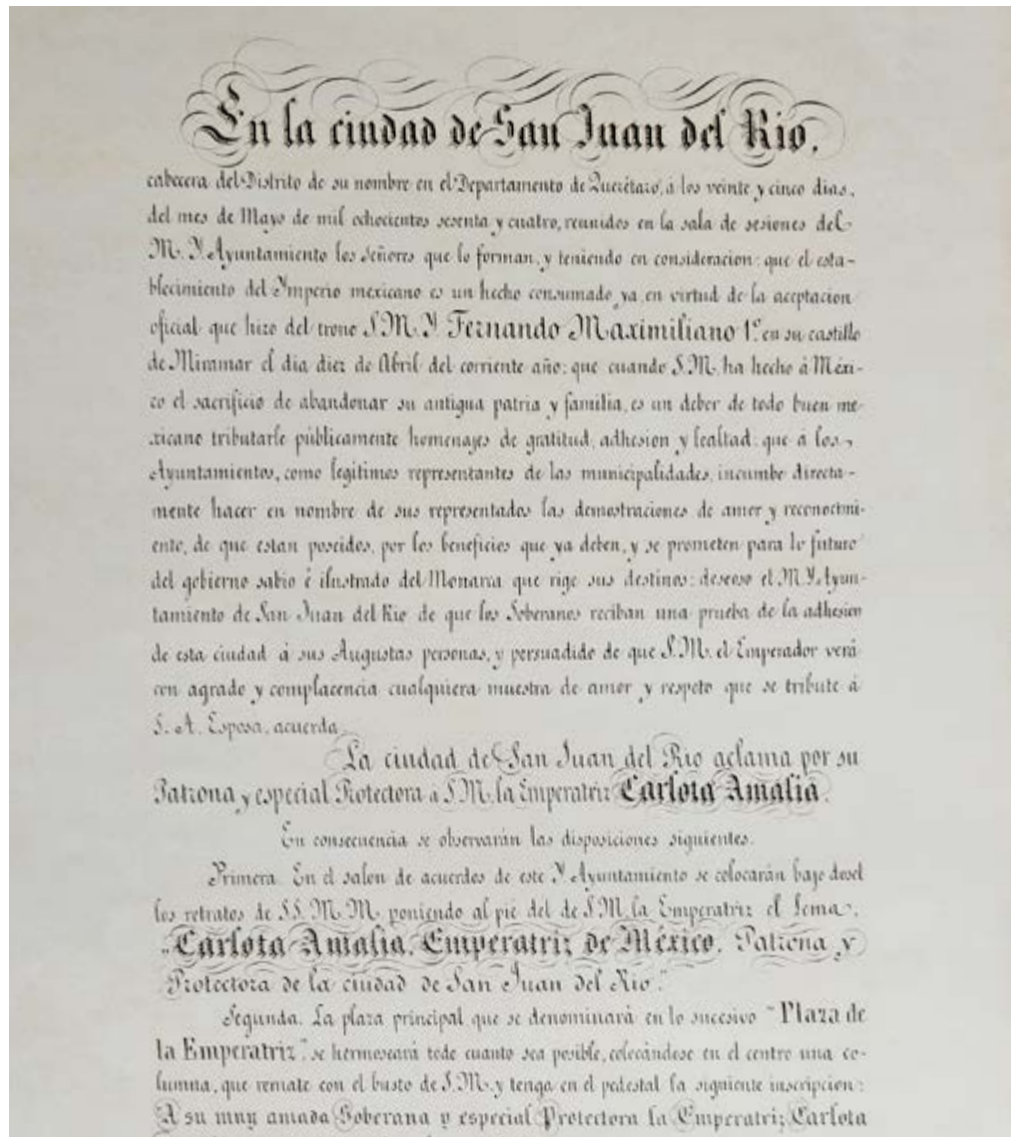 En la ciudad de San Juan del Rio,
cabecera del Distrito de su nombre en el Departamento de Querétaro, á los veinte y cinco dias,
del mes de Mayo de mil ochocientos sesenta y cuatro, reunidos en la sala de sesiones del
M. Y. Ayuntamiento los Señores que lo forman, y teniendo en consideracion: que el esta-
blecimiento del Ymperio mexicano es un hecho consumado ya, en virtud de la aceptacion
oficial que hizo del trono S. M. Y. Fernando Maximiliano 1º en su castillo
de Miramar el dia diez de Abril del corriente año: que cuando S. M. ha hecho á Méxi-
co el sacrificio de abandonar su antigua patria y familia, es un deber de todo buen me-
xicano tributarle públicamente homenajes de gratitud, adhesion y lealtad: que á los
Ayuntamientos, como legítimos representantes de las municipalidades, incumbe directa-
mente hacer en nombre de sus representados las demostraciones de amor y reconocimi-
ento, de que estan poseidos, por los beneficios que ya deben, y se prometen para lo futuro
del gobierno sabio é ilustrado del Monarca que rige sus destinos: deseoso el M. Y. Ayun-
tamiento de San Juan del Rio de que los Soberanos reciban una prueba de la adhesion
de esta ciudad á sus Augustas personas, y persuadido de que S. M. el Emperador verá
con agrado y complacencia cualquiera muestra de amor y respeto que se tribute á
S. A. Esposa, acuerda.
La ciudad de San Juan del Rio aclama por su
Patrona y especial Protectora a S. M. la Emperatriz Carlota Amalia.
En consecuencia se observarán las disposiciones siguientes.
Primera. En el salon de acuerdos de este Y. Ayuntamiento se colocarán bajo dosel
los retratos de SS. M. M. poniendo al pié del de S. M. la Emperatriz el lema:
"Carlota Amalia, Emperatriz de México, Patrona y
Protectora de la ciudad de San Juan del Rio."
Segunda. La plaza principal que se denominará en lo sucesivo "Plaza de
la Emperatriz", se hermoseará todo cuanto sea posible, colocándose en el centro una co-
lumna, que remate con el busto de S. M. y tenga en el pedestal la siguiente inscripcion:
A su muy amada Soberana y especial Protectora la Emperatriz Carlota